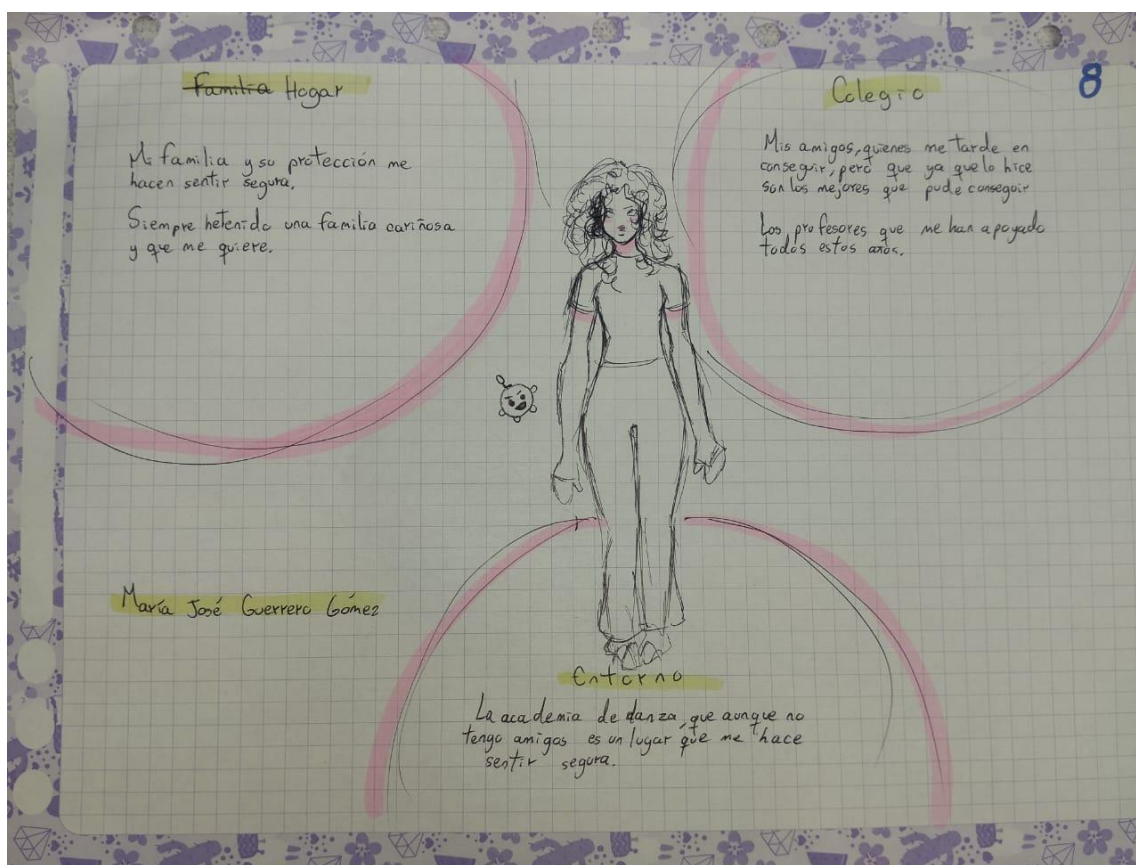 Familia Hogar
Mi familia y su protección me
hacen sentir segura.
Siempre hetenido una familia cariñosa
y que me quiere.
Colegio
8
Mis amigos, quienes me tarde en
conseguir, pero que ya que lo hice
son los mejores que pude conseguir
Los profesores que me han apoyado
todos estos años.
María José Guerrero Gómez
Entorno
La academia de danza, que aunque no
tengo amigos es un lugar que me hace
sentir segura.